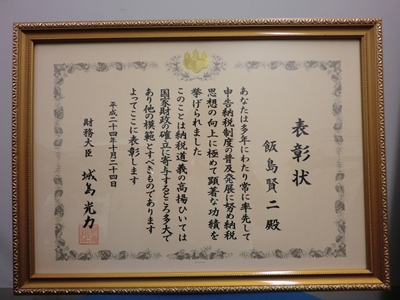 表彰状
飯島賢二殿
あなたは多年にわたり常に率先して
申告納税制度の普及発展に努め納税
思想の向上に極めて顕著な功績を
挙げられました
このことは納税道義の高揚ひいては
国家財政の確立に寄与するところ多大で
あり他の模範とすべきものであります
よってここに表彰します
平成二十四年十月二十四日
財務大臣 城島光力